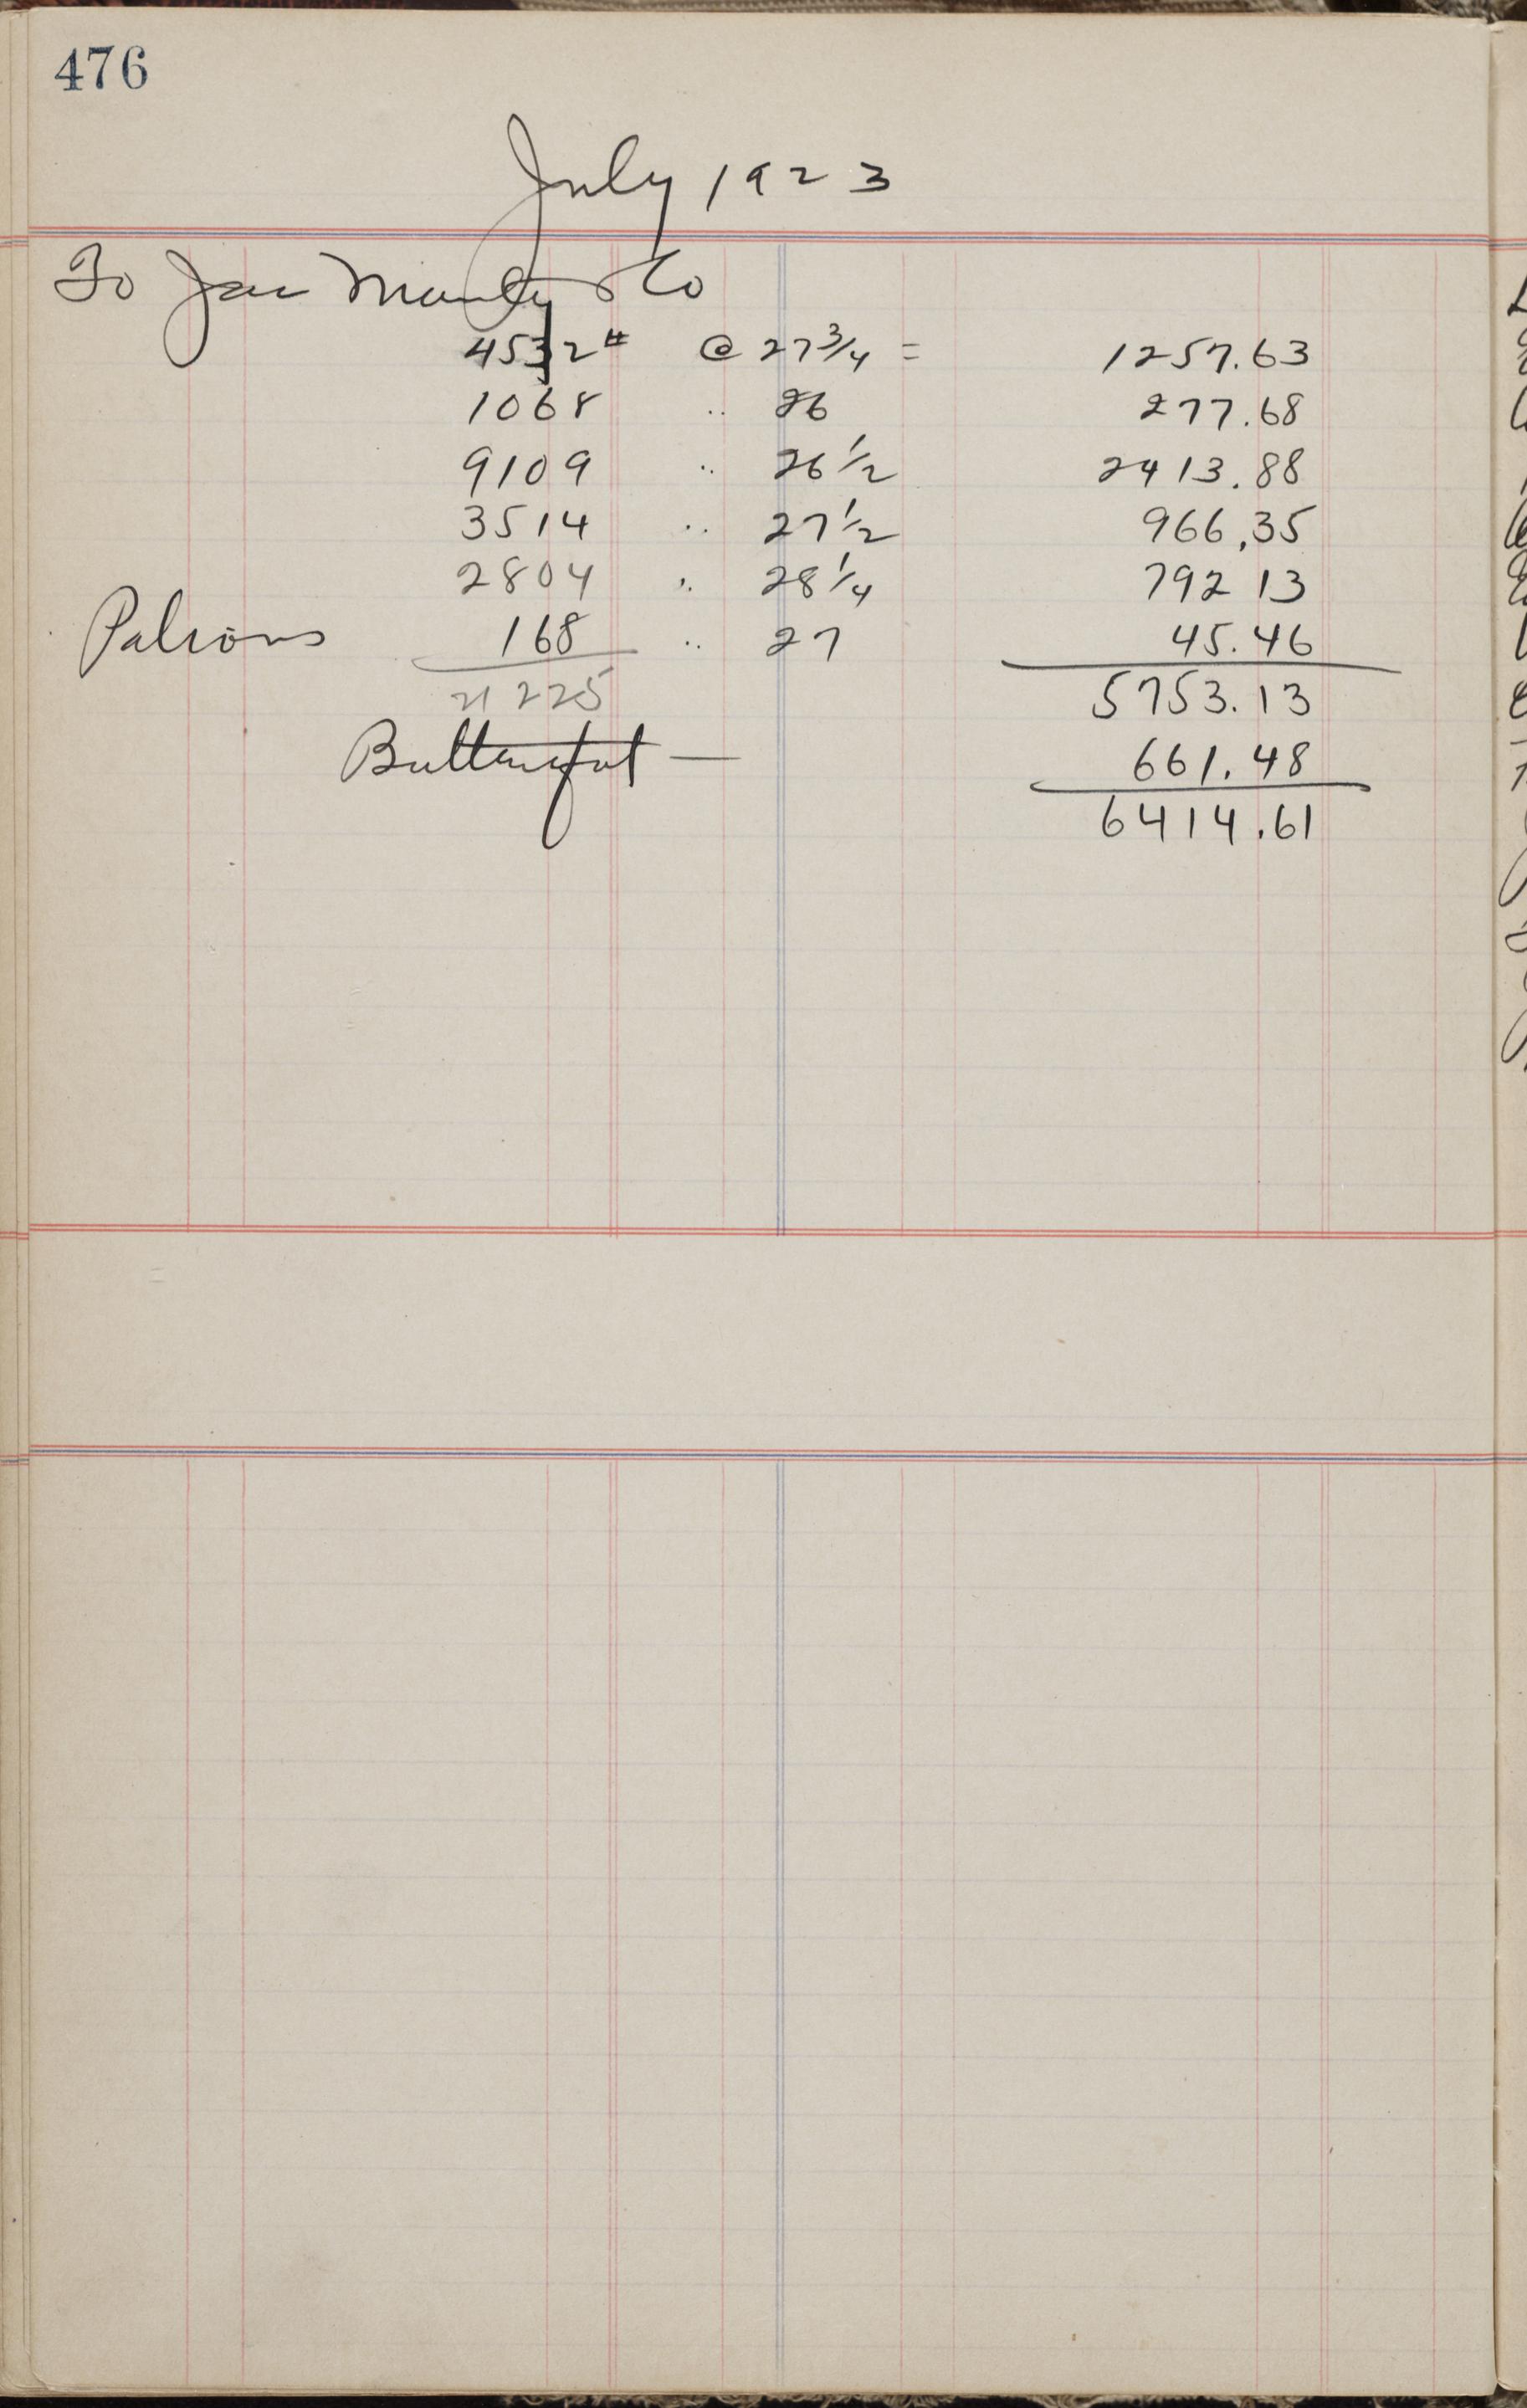 476
July 1923
To Jas Manley & Co
4532# @ 27 3/4 = 1257.63
1068 .. 26 277.68
9109 .. 26 1/2 2413.88
3514 .. 27 1/2 966.35
2804 .. 28 1/4 792 13
Patrons 168 .. 27 45.46
21225 5753.13
Butterfat — 661.48
6414.61